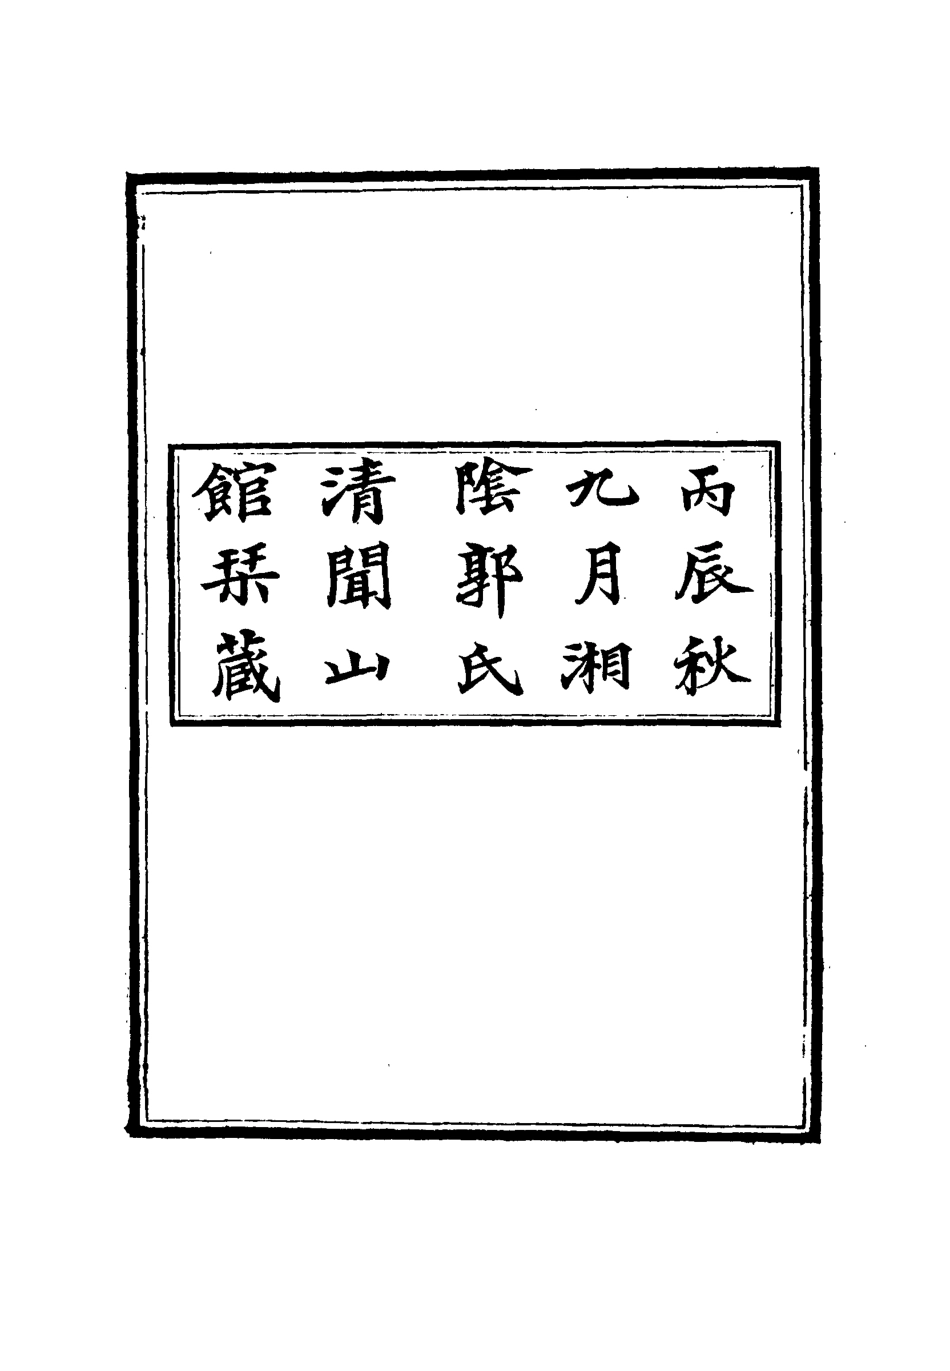 丙辰秋
九月湘
陰郭氏
清聞山
館栞蔵